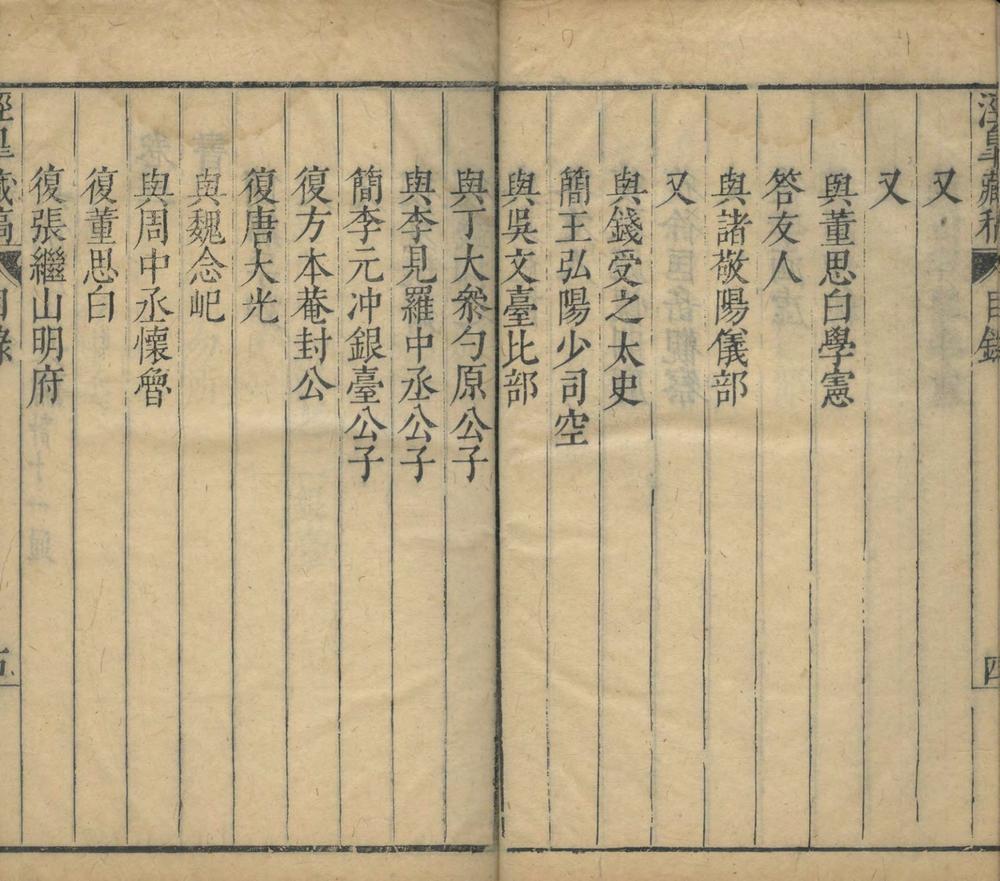 涇臯藏稿
目錄
四
又
又
與董思白學憲
答友人
與諸敬陽儀部
又
與錢受之太史
簡王弘陽少司空
與吳文臺比部
與丁大叅勺原公子
與李見羅中丞公子
簡李元冲銀臺公子
復方本菴封公
復唐大光
與魏念屺
與周中丞懷魯
復董思白
復張繼山明府
涇臯藏稿
目錄
五